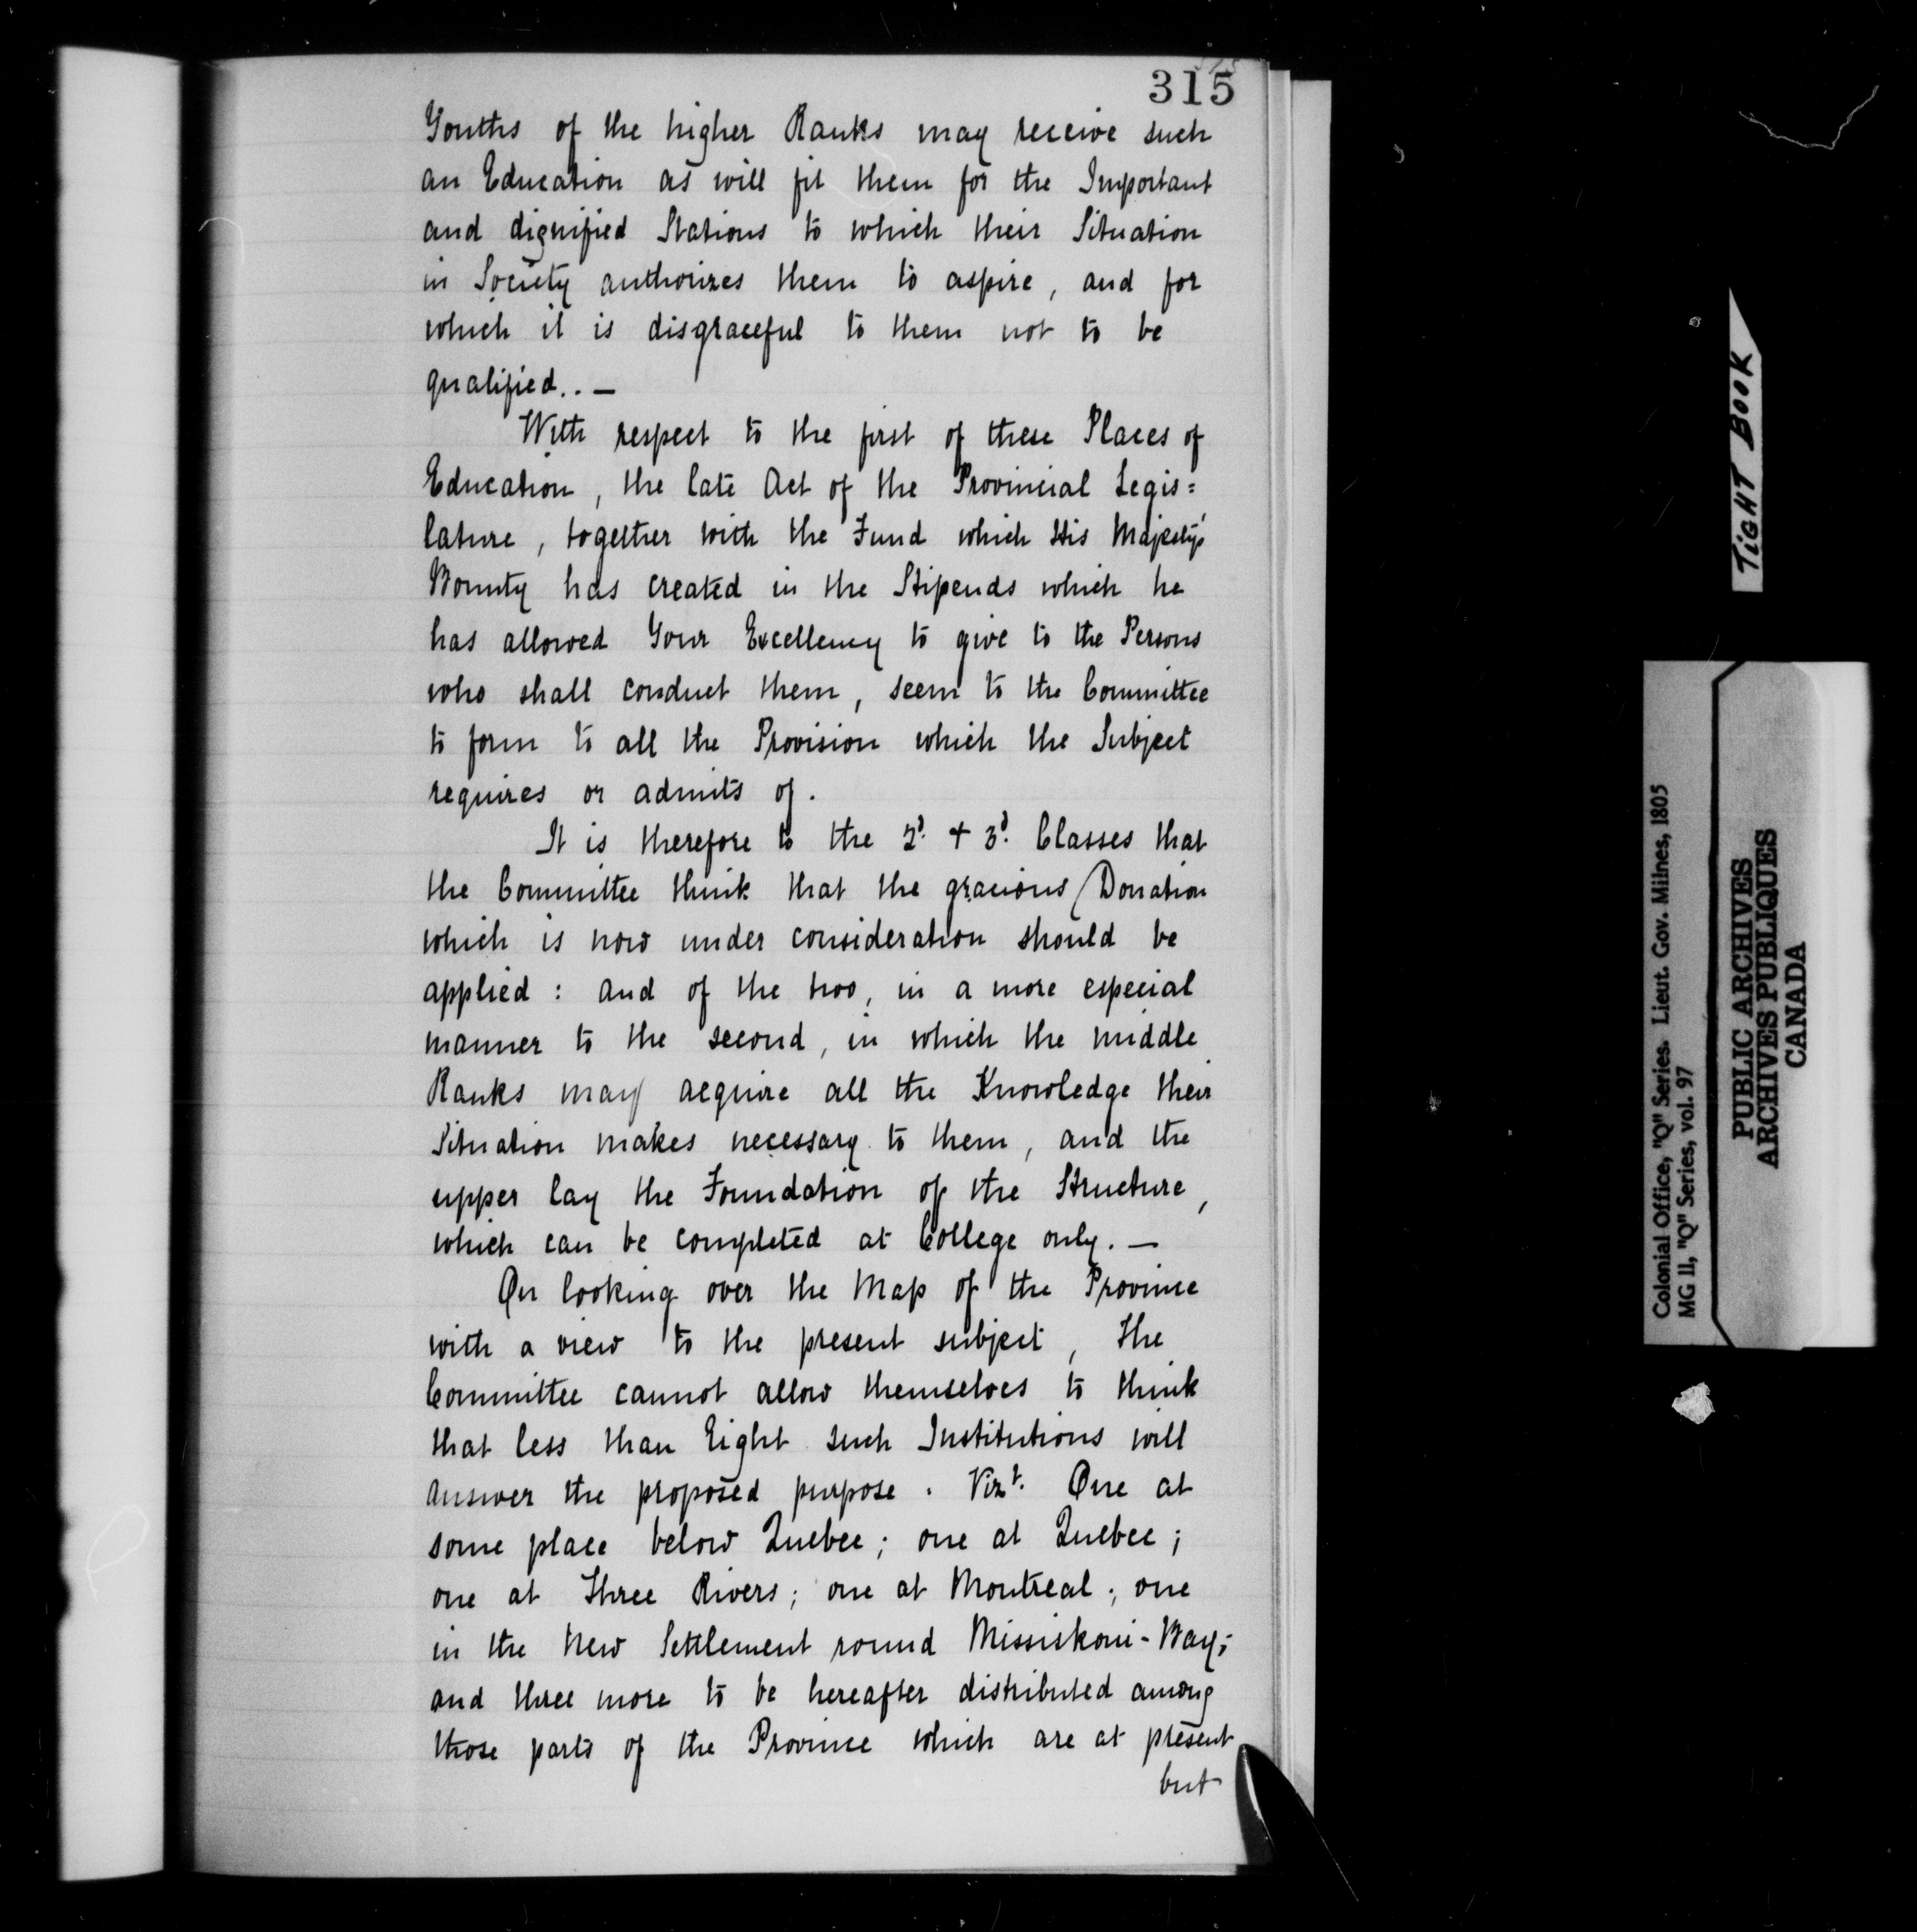 315
Youths of the higher Ranks may receive such
an Education as will fit them for the Important
and dignified Stations to which their Situation
in Society authorizes them to aspire, and for
which it is disgraceful to them not to be
qualified.. —
With respect to the first of these Places of
Education, the late Act of the Provincial Legis=
lature, together with the Fund which His Majesty's
Bounty has created in the Stipends which he
has allowed Your Excellency to give to the Persons
who shall conduct them, seem to the Committee
to form to all the Provision which the Subject
requires or admits of.
It is therefore to the 2d. + 3d. Classes that
the Committee think that the gracious Donation
which is now under consideration should be
applied: and of the two, in a more especial
manner to the second, in which the middle
Ranks may acquire all the Knowledge their
Situation makes necessary to them, and the
upper lay the Foundation of the Structure,
which can be completed at College only. —
On looking over the Map of the Province
with a view to the present subject, the
Committee cannot allow themselves to think
that less than Eight such Institutions will
answer the proposed purpose. Vizt. One at
some place below Quebec; one at Quebec;
one at Three Rivers; one at Montreal; one
in the New Settlement round Missiskoui-Bay;
and three more to be hereafter distributed among
those parts of the Province which are at present
but
TIGHT BOOK
Colonial Office, "Q" Series. Lieut. Gov. Milnes, 1805
MG 11, "Q" Series, vol. 97
PUBLIC ARCHIVES
ARCHIVES PUBLIQUES
CANADA